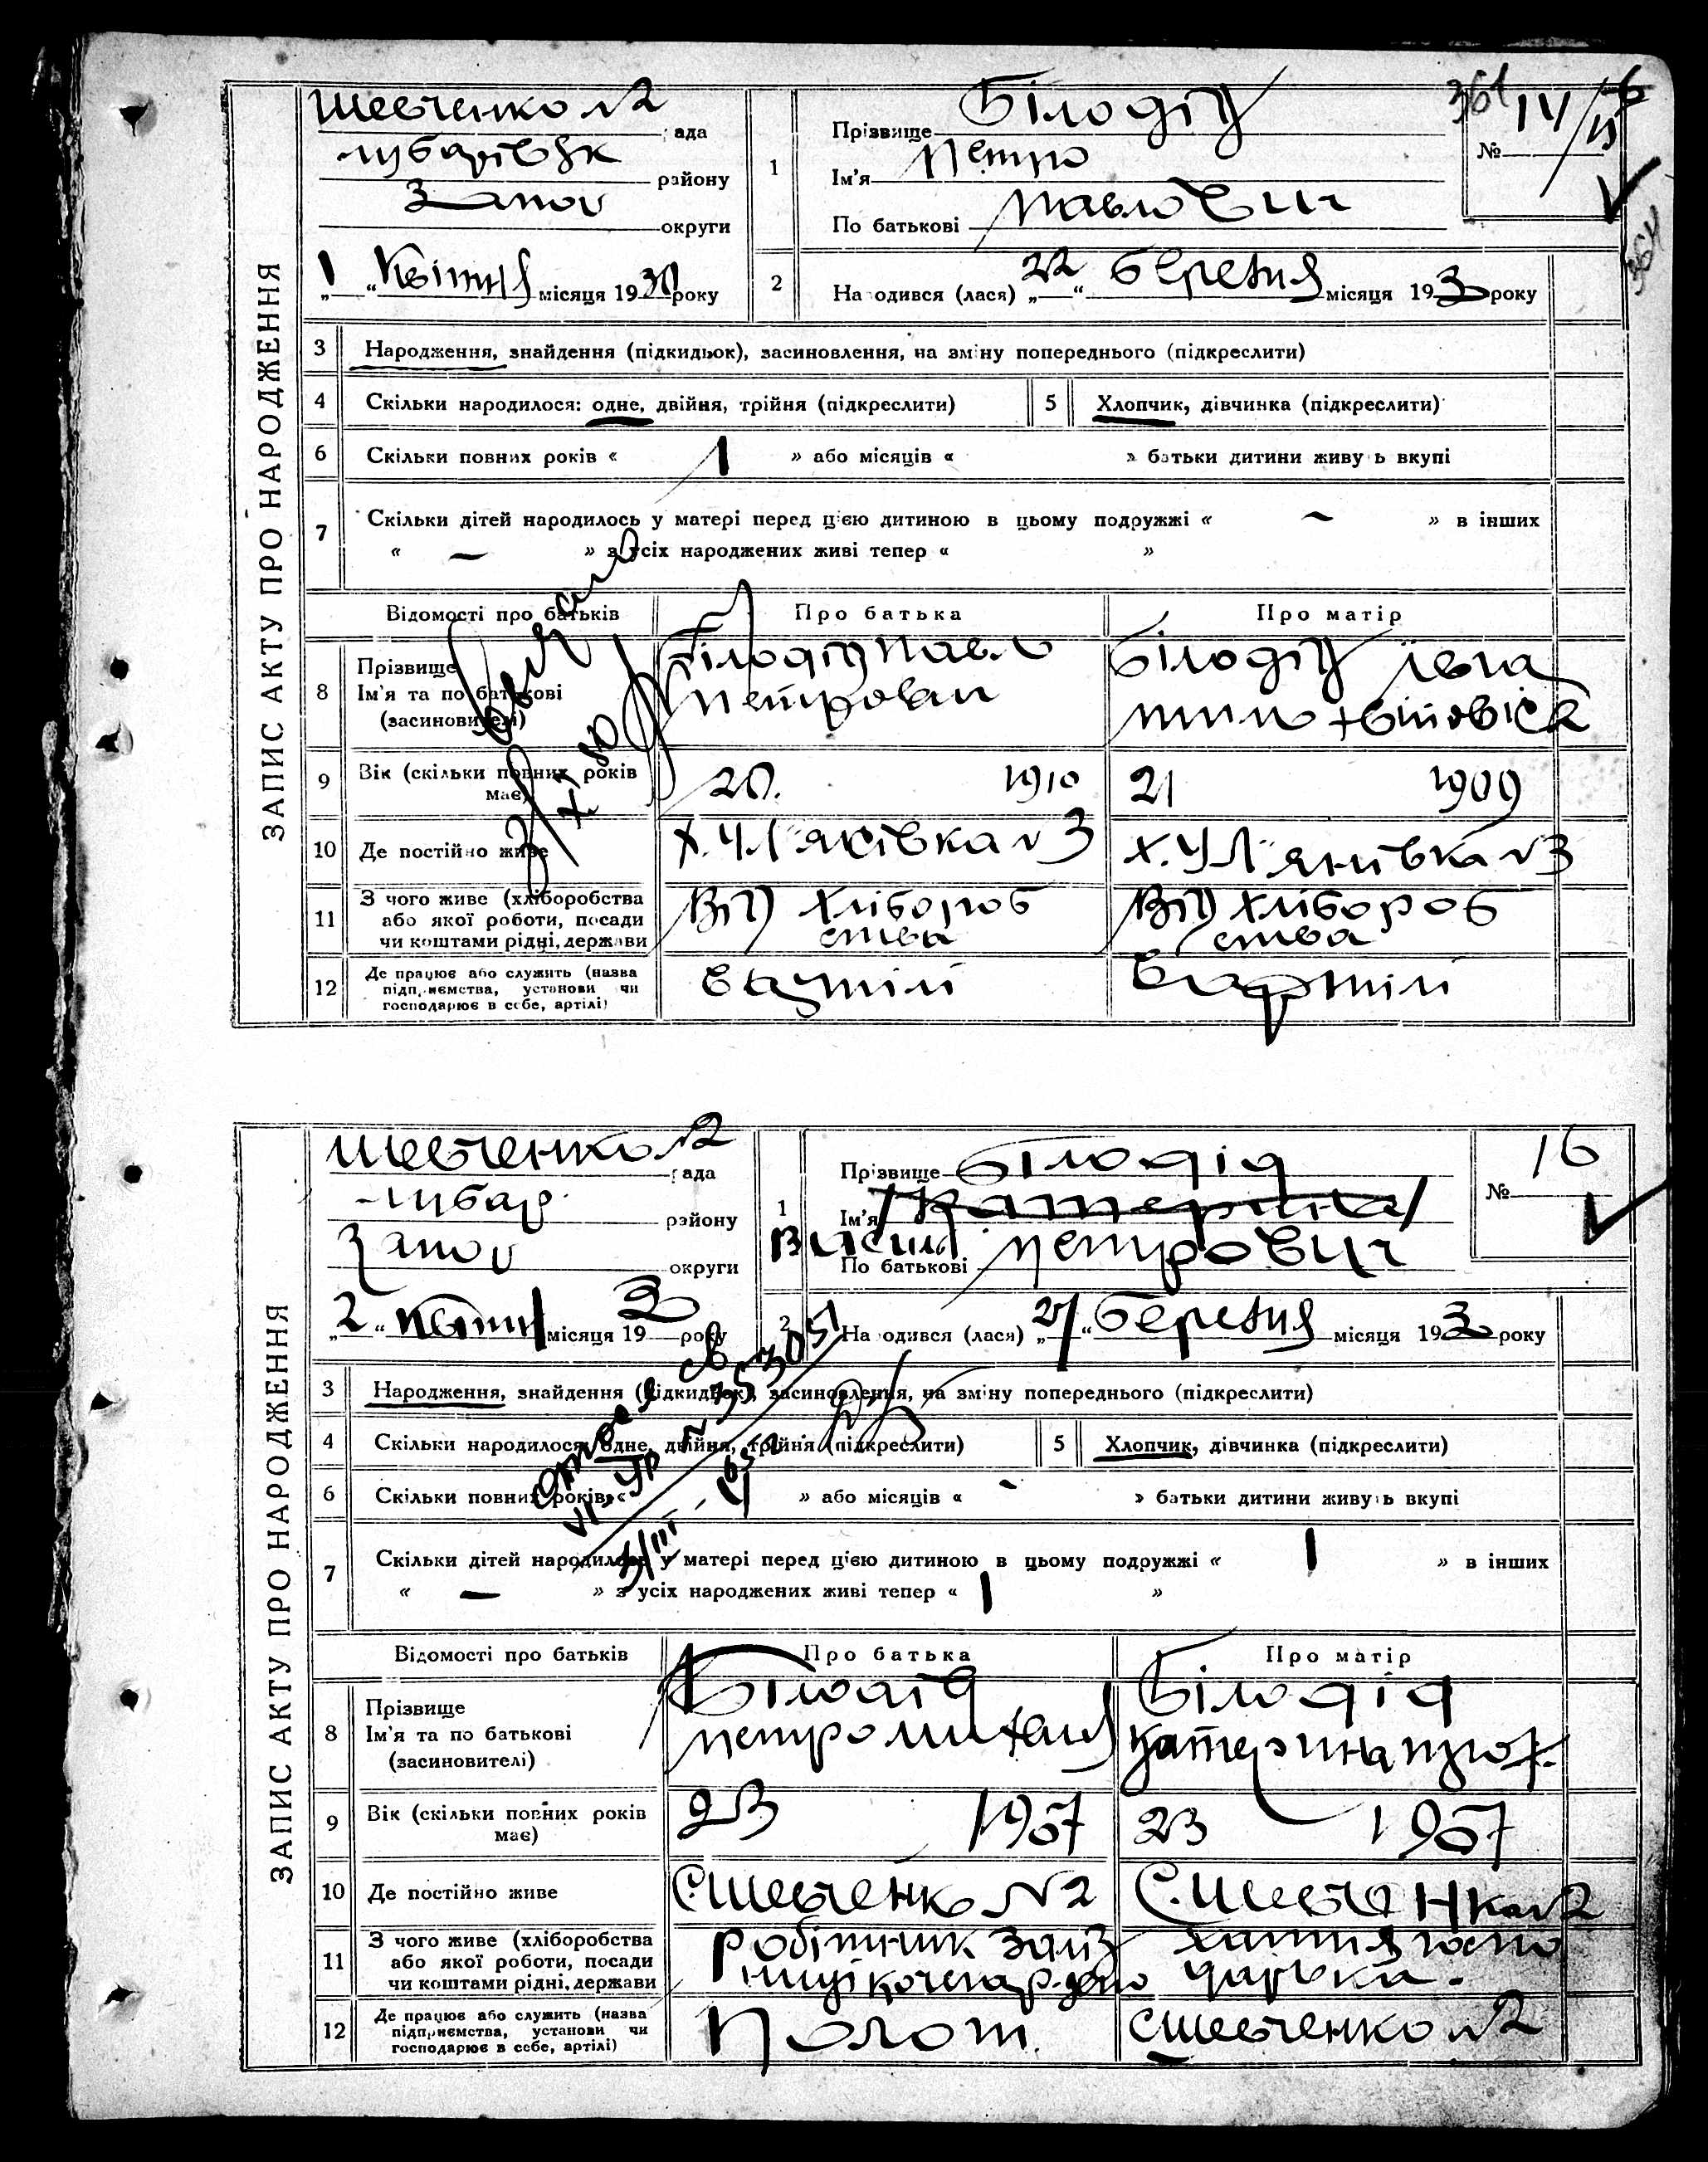 ЗАПИС АКТУ ПРО НАРОДЖЕННЯ
Шевченко №2
рада
району
Запор
округи
1 "Квітня місяця 1930 року
1
Прізвище Білодід
Ім'я Петро
По батькові Павлович
361
№ 14/
2
Народився (лася) „22" березня місяця 193 року
3 Народження, знайдення (підкидьок), засиновлення, на зміну попереднього (підкреслити)
4 Скільки народилося: одне, двійня, трійня (підкреслити)
5 Хлопчик, дівчинка (підкреслити)
6 Скільки повних років « 1 » або місяців « » батьки дитини живуть вкупі
7 Скільки дітей народилось у матері перед цією дитиною в цьому подружжі « — » в інших
« — » з усіх народжених живі тепер « »
Відомості про батьків
Про батька
Про матір
8 Прізвище
Ім'я та по батькові
(засиновителі)
Білодід Павло
Петрович
Білодід
9 Вік (скільки повних років має)
20. 1910
21 1909
10 Де постійно живе
х. Ул'янівка №3
х. Ул'янівка №3
11 З чого живе (хліборобства
або якої роботи, посади
чи коштами рідні, держави
Від хлібороб
ства
Від хлібороб
ства
12 Де працює або служить (назва
підприємства, установи чи
господарює в себе, артілі)
в артілі
в артілі
ЗАПИС АКТУ ПРО НАРОДЖЕННЯ
Шевченко №2
рада
району
Запор
округи
„2" квітня місяця 193 року
1
Прізвище Білодід
Ім'я Катерина
Василь
По батькові Петрович
№ 16
2
Народився (лася) „27" березня місяця 193 року
3 Народження, знайдення (підкидьок), засиновлення, на зміну попереднього (підкреслити)
4 Скільки народилося: одне, двійня, трійня (підкреслити)
5 Хлопчик, дівчинка (підкреслити)
6 Скільки повних років « » або місяців « - » батьки дитини живуть вкупі
7 Скільки дітей народилось у матері перед цією дитиною в цьому подружжі « 1 » в інших
« — » з усіх народжених живі тепер « 1 »
Відомості про батьків
Про батька
Про матір
8 Прізвище
Ім'я та по батькові
(засиновителі)
Білодід
Петро
Білодід
Катерина
9 Вік (скільки повних років має)
23 1907
23 1907
10 Де постійно живе
С. Шевченко №2
С. Шевченко №2
11 З чого живе (хліборобства
або якої роботи, посади
чи коштами рідні, держави
Робітник заліз
хатня госпо
дарька.
12 Де працює або служить (назва
підприємства, установи чи
господарює в себе, артілі)
Полот.
с Шевченко №2